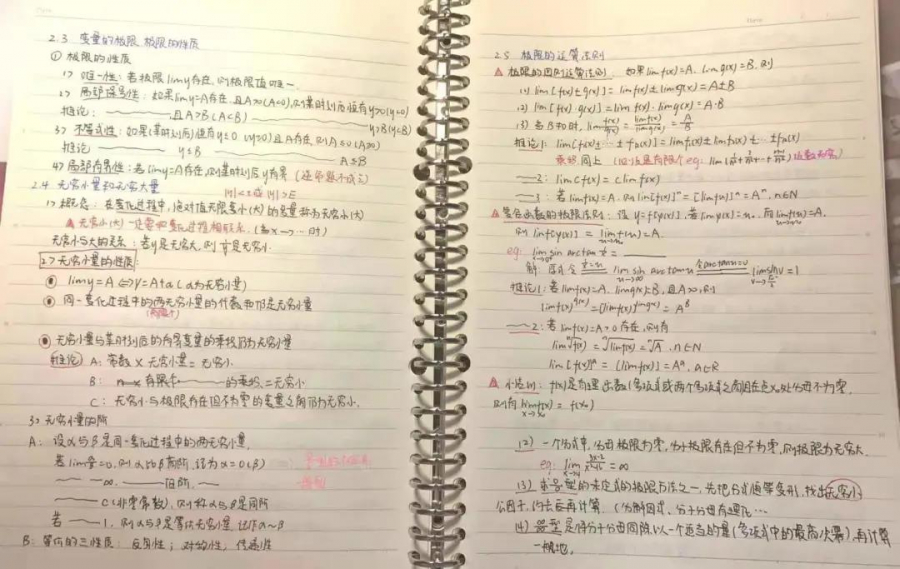 2.3 变量的极限 极限的性质
① 极限的性质
1) 唯一性：若极限 lim y 存在，则极限值唯一．
2) 局部保号性：如果 lim y=A 存在，且 A>0 (A<0)，则某时刻后恒有 y>0 (y<0)
推论： 且 A>B (A<B) y>B (y<B)
3) 不等式性：如果(某时刻后)恒有 y≤0 (y≥0) 且 A 存在，则 A≤0 (A≥0)
推论 y≤B A≤B
4) 局部有界性：若 lim y=A 存在，则某时刻后 y 有界 (逆命题不成立)
2.4 无穷小量和无穷大量 |y|<ε 或 |y|>E
1) 概念：在变化过程中，绝对值无限变小(大)的变量称为无穷小(大)
▲ 无穷小(大)一定要和变化过程相联系．(当 x→…时)
无穷小与大的关系：若y是无穷大，则 1/y 是无穷小．
2) 无穷小量的性质：
● lim y=A ⟺ y=A+α (α为无穷小)
● 同一变化过程中的两无穷小量的代数和仍是无穷小量
(有限个)
● 无穷小量与某时刻后的有界变量的乘积仍为无穷小量
推论 A：常数 × 无穷小量 = 无穷小．
B： 有限个 的乘积 = 无穷小
C：无穷小与极限存在但不为零的变量之商仍为无穷小．
3) 无穷小量的阶
A：设α与β是同一变化过程中的两无穷小量．
若 lim α/β=0，则 α比β高阶，记为 α=0(β)
∞． 低阶．
C (非零常数)，则称α与β是同阶
若 1，则α与β是等价无穷小量，记作 α~β
B：等价的三性质：反身性；对称性；传递性
2.5 极限的运算法则
▲ 极限的四则运算法则．如果 lim f(x)=A．lim g(x)=B，则
(1) lim [f(x)±g(x)] = lim f(x)±lim g(x) = A±B
(2) lim [f(x)·g(x)] = lim f(x)·lim g(x) = A·B
(3) 当 B≠0 时，lim f(x)/g(x) = lim f(x)/lim g(x) = A/B
推论1：lim [f₁(x)±…±fₙ(x)] = lim f₁(x)±lim f₂(x)±…±fₙ(x)
乘法同上
2：lim cf(x) = c lim f(x)
3：若 lim f(x)=A．则 lim [f(x)]ⁿ = [lim f(x)]ⁿ = Aⁿ，n∈N
▲ 复合函数的极限法则：设 y=f[φ(x)]，若 lim φ(x)=u₀，而 lim f(u)=A．
则 lim f[φ(x)] = lim f(u) = A．
推论1：若 lim f(x)=A．lim g(x)=B，且 A>0，则
lim f(x)^g(x) = (lim f(x))^lim g(x) = A^B
2：若 lim f(x)=A>0 存在，则有
lim ⁿ√f(x) = ⁿ√lim f(x) = ⁿ√A，n∈N
lim [f(x)]ᵃ = [lim f(x)]ᵃ = Aᵃ，a∈R
▲ 小总结：f(x)是有理函数(多项式或两个多项式之商)且在 x₀ 处分母不为零
则有 lim f(x) = f(x₀)
x→x₀
(2) 一个分式中，分母极限为零，分子极限存在但不为零，则极限为无穷大．
(3) 求 型的未定式的极限方法之一，先把分式恒等变形，找出无穷小
公因子，约去后再计算． (分解因式，分子分母有理化…
(4) 型是将分子分母同除以一个适当的量(多项式中的最高次幂)，再计算